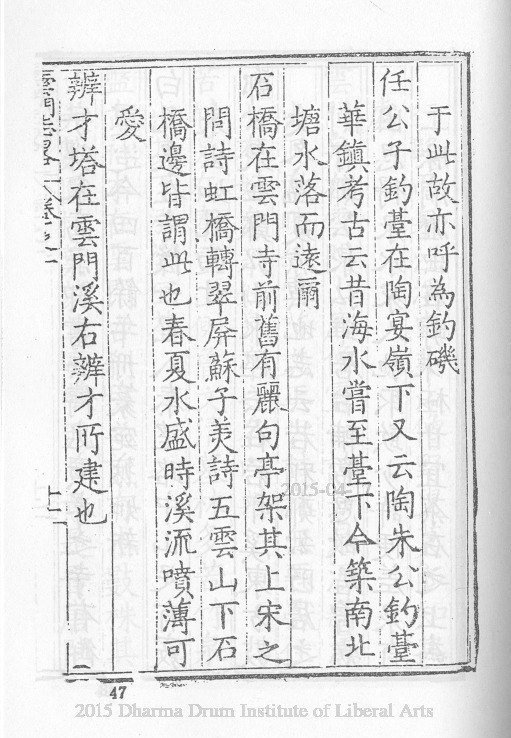 于此故亦呼為釣磯
任公子釣臺在陶宴嶺下又云陶朱公釣臺
華鎮考古云昔海水嘗至臺下今築南北
塘水落而遠爾
石橋在雲門寺前舊有麗句亭架其上宋之
問詩虹橋轉翠屏蘇子美詩五雲山下石
橋邊皆謂此也春夏水盛時溪流噴薄可
愛
辨才塔在雲門溪右辨才所建也
雲門志略卷之一
上一
47
2015-04
2015 Dharma Drum Institute of Liberal Arts